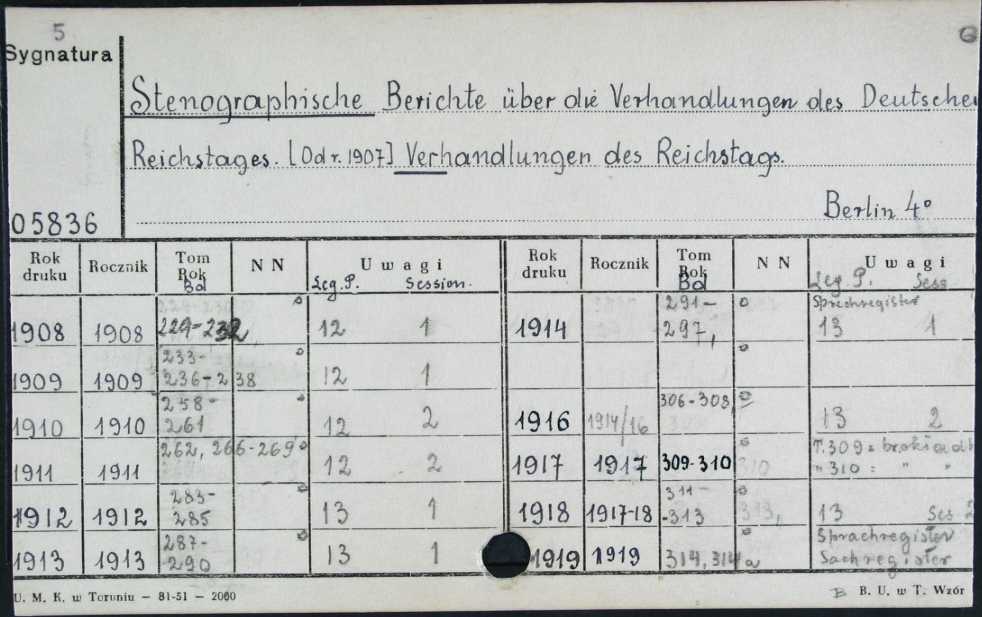 5 G
Sygnatura
Stenographische Berichte über die Verhandlungen des Deutsche
Reichstages. [Od r. 1907] Verhandlungen des Reichstags.
05836 Berlin 4°
Rok druku Rocznik Tom Rok Bd N N Uwagi Leg. P. Session. Rok druku Rocznik Tom Rok Bd N N Uwagi Leg. P. Sess
1908 1908 229-232, 12 1 1914 291-297, Sprechregister 13 1
1909 1909 233-236-238 12 1
1910 1910 258-261 12 2 1916 1914/16 306-308, 13 2
1911 1911 262, 266-269 12 2 1917 1917 309-310 310 T. 309 =
" 310 : " "
1912 1912 283-285 13 1 1918 1917-18 311-313 313, 13 Ses 2
1913 1913 287-290 13 1 1919 1919 314, 314a Sprachregister
Sachregister
U. M. K. w Toruniu — 81-51 — 2000 B B. U. w T. Wzór